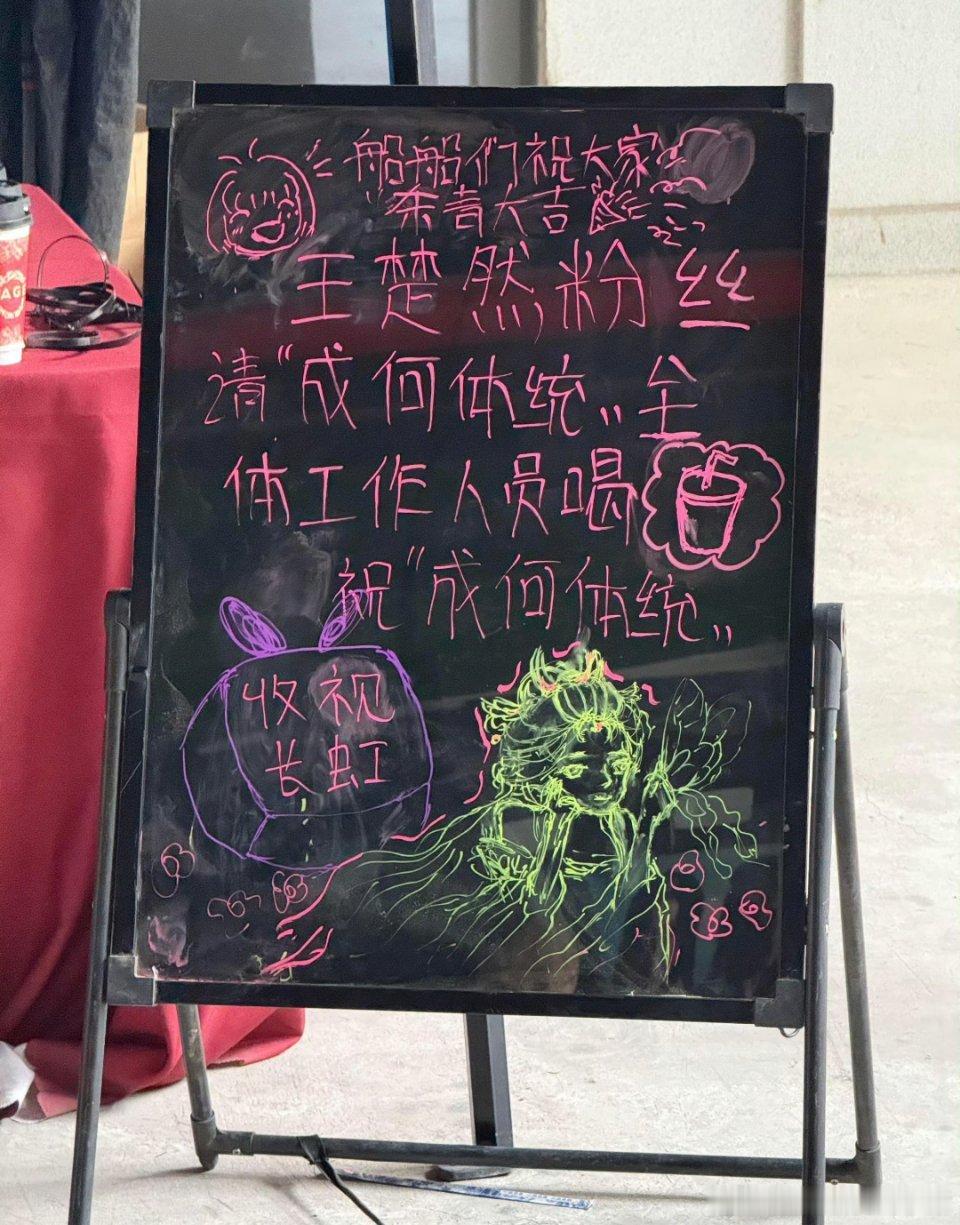 船船们祝大家
杀青大吉
王楚然粉丝
请“成何体统”全
体工作人员喝
祝“成何体统”
收视
长虹